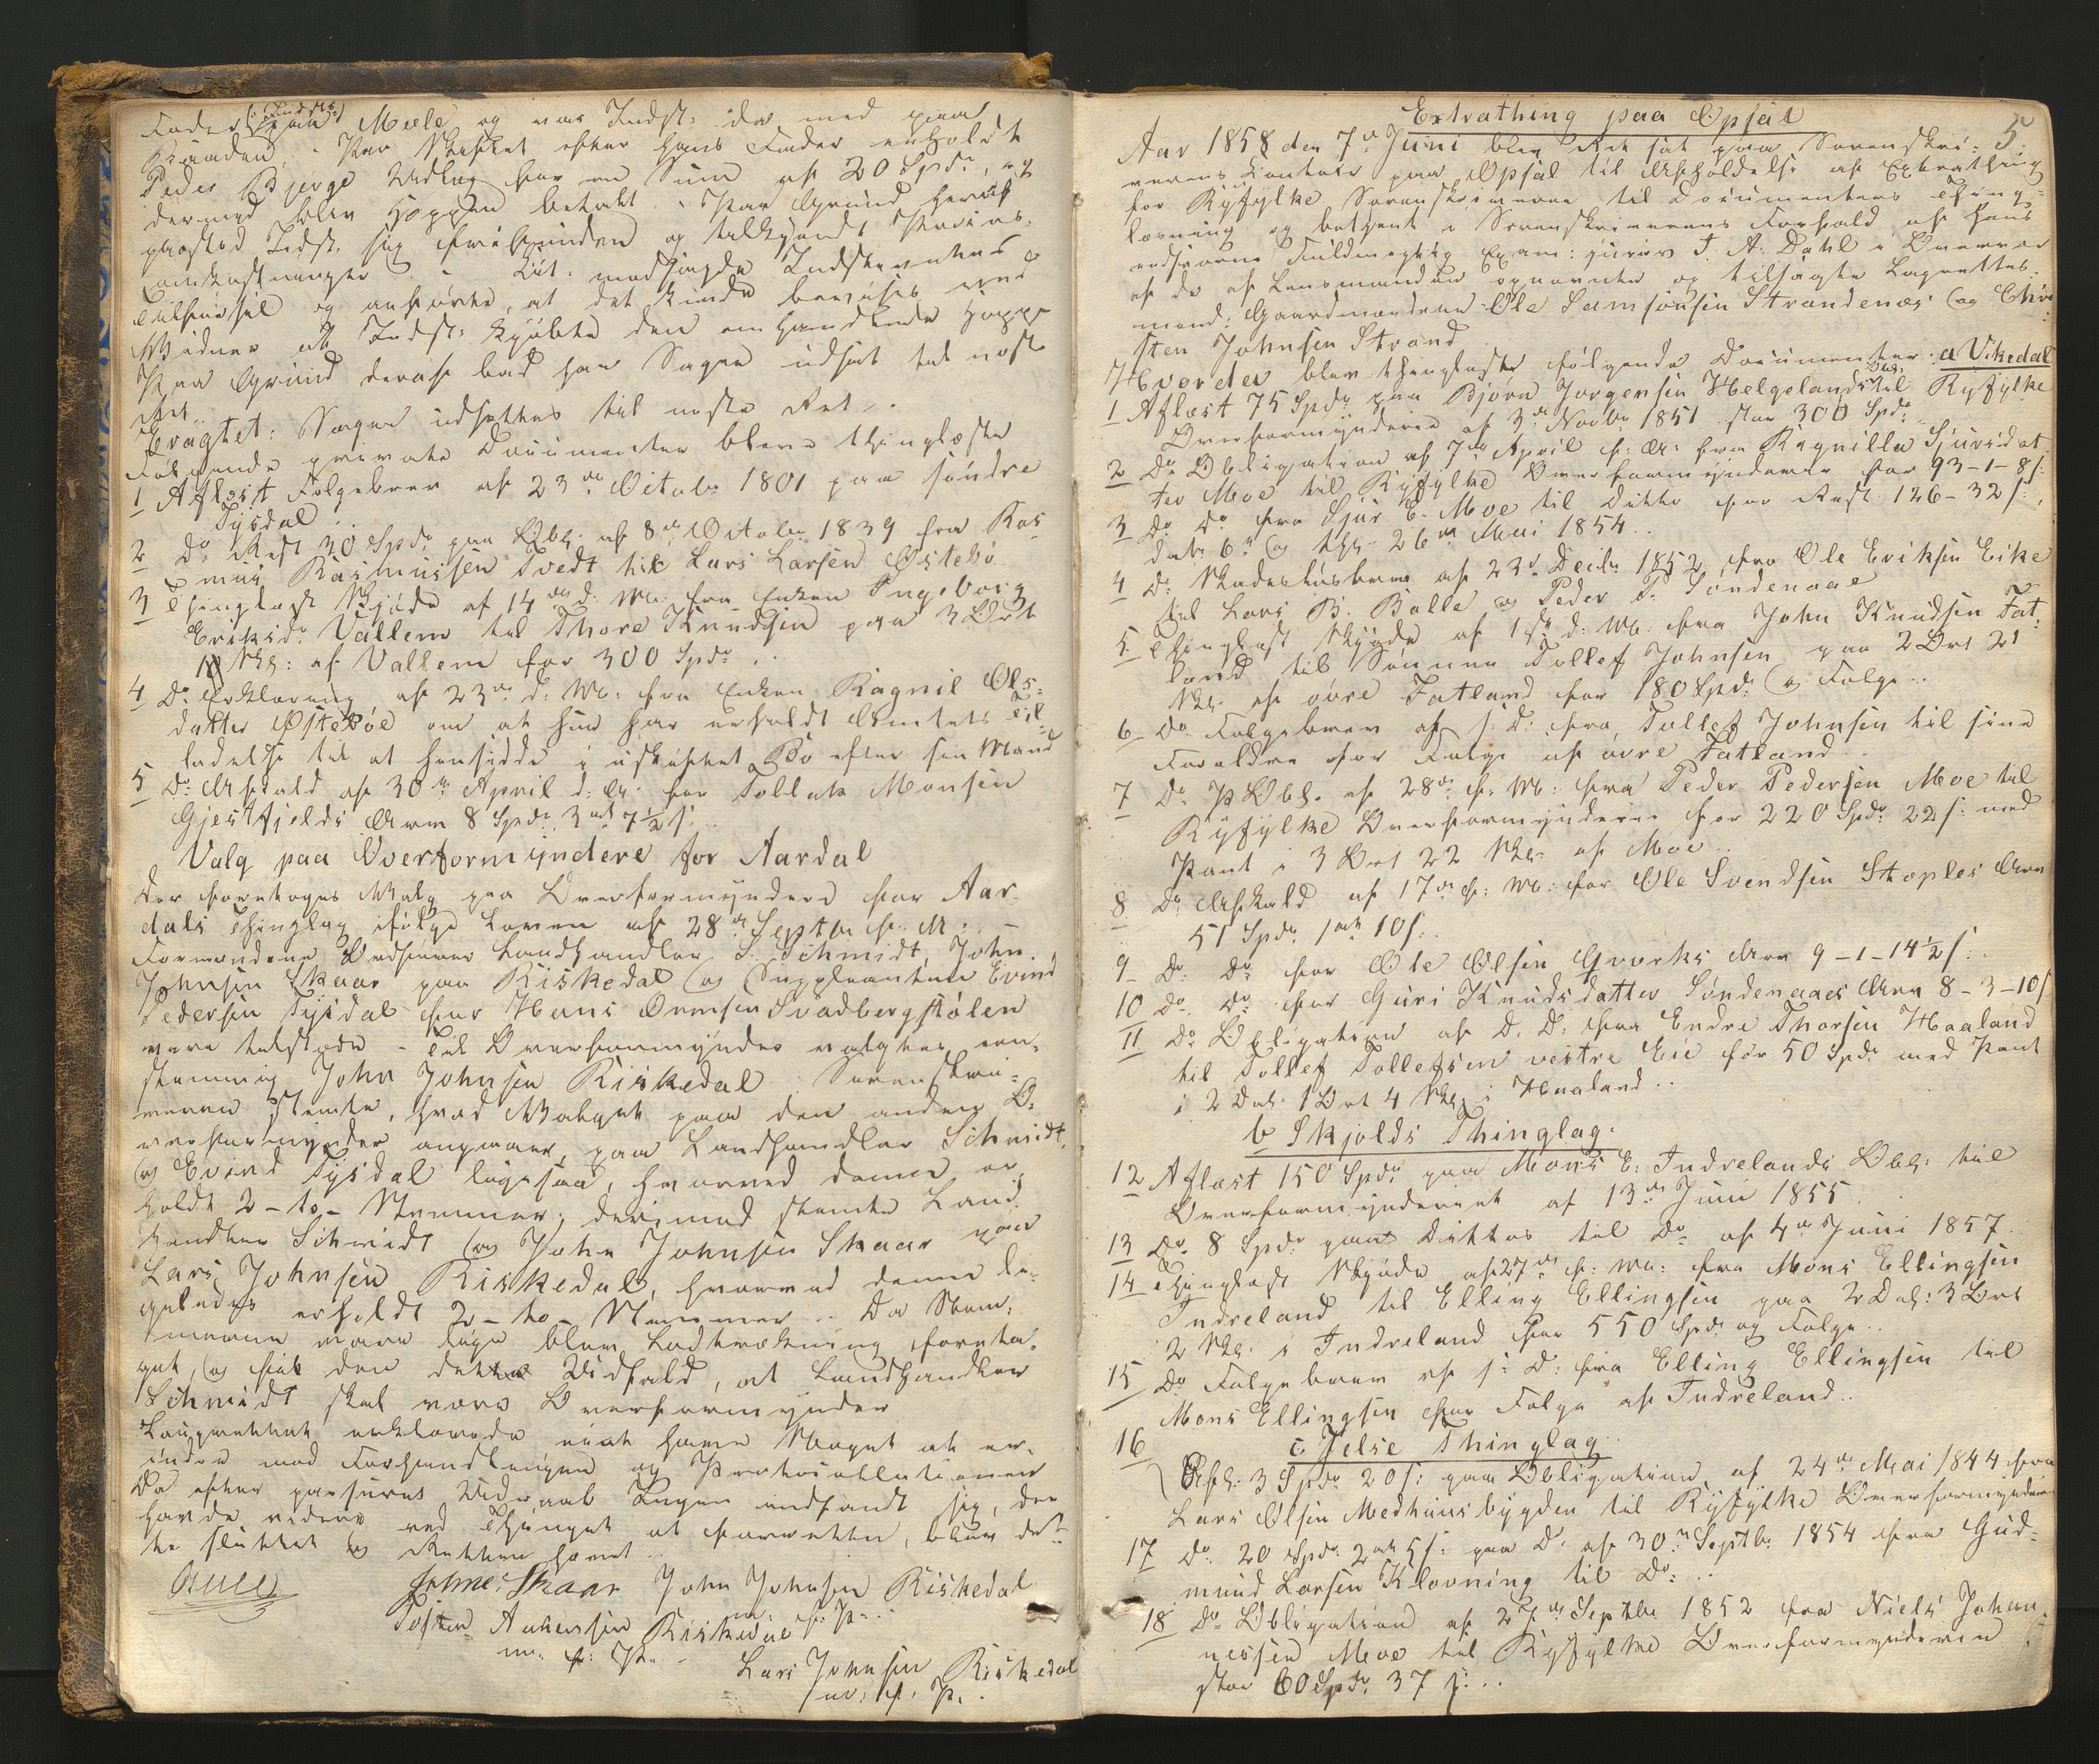 Fader (: Knud :) paa Mæle og var Indst: da med paa
Raaden, - For Skiftet efter hans Fader erholdt
Peder Bjerge Udlæg for en Sum af 20 Spdr, og
dermed blev Hoppen betalt. - Paa Grund heraf
paastod Indst. sig frifunden og tilkjendt Proces-
omkostninger. - Cit: modsagde Indstevntes
Tilførsel og anførte, at det kunde bevises ved
Vidner at Indst: kjøbte den omhandlede Hoppe
Paa Grund deraf bad han Sagen udsat til næste
Ret..
Eragtet: Sagen udsættes til næste Ret..
Følgende private Documenter bleve thinglæste
1 Aflæst Følgebrev af 23de Octobr 1801 paa søndre
Tysdal..
2 Do Rest 30 Spdr paa Obl. af 8de Octobr 1839 fra Ras-
mus Rasmussen Tvedt til Lars Larsen Østebø
3 Thinglæst Skjøde af 14de d: M: fra Enken Ingeborg
Eriksdr Vallem til Thore Knudsen paa 3 Ort
10 Skl: af Vallem for 300 Spdr..
4 Do Erklæring af 23de d: M: fra Enken Ragnil Ols-
datter Østebøe om at hun har erholdt Amtets Til-
ladelse til at hensidde i uskiftet Bo efter sin Mand
5 Do Afkald af 30te April d: A: for Tollak Monsen
Gjestfjelds Arv 8 Spdr 3 ort 7½ s:..
Valg paa Overformyndere for Aardal
Der foretoges Valg paa Overformyndere for Aar-
dals Thinglag ifølge Loven af 28de Septbr f. A:. -
Formændene Ordfører Landhandler S. Schmidt, John
Johnsen Skaar paa Riskedal og Suppleanten Evind
Pedersen Tysdal for Hans Ommsen Svadbergstølen
vare tilstede - Til Overformynder valgtes een-
stemmig John Johnsen Riskedal. Sorenskri-
veren stemte, hvad Valget paa den anden O-
verformynder angaaer, paa Landhandler Schmidt,
og Evind Tysdal ligesaa, hvorved denne er-
holdt 2 - to - Stemmer; derimod stemte Land-
handler Schmidt og John Johnsen Skaar paa
Lars Johnsen Riskedal, hvorved denne li-
geledes erholdt 2 - to - Stemmer.. Da Stem-
merne vare lige blev Lodtrækning foreta-
get, og fik den dette Udfald, at Landhandler
Schmidt skal være Overformynder
Laugrettet erklærede intet have Noget at er-
indre mod Forhandlingen og Protocollationen
Da efter passeret Udraab Ingen indfandt sig, der
havde videre ved Thinget at forrette, blev det-
te sluttet og Retten hævet..
Bull
Johne Skaar John Johnsen Riskedal
m: f: P:..
Tosten Aanensen Riskedal
m. f: P. -
Lars Johnsen Riskedal
m: f. P..
Extrathing paa Opsal
5.
Aar 1858 den 7de Juni blev Ret sat paa Sorenskri-
verens Contoir paa Opsal til Afholdelse af Extrathing
for Ryfylke Sorenskriverie til Documenters Thing-
læsning og betjent i Sorenskriverens Forfald af hans
edsvorne Fuldmægtig Exam: juris J. A. Dahl i Overvær
af de af Lensmanden opnævnte og tilsagte Lagrettes-
mænd: Gaardmændene Ole Samsonsen Strandenæs og Chri-
sten Johnsen Strand
Hvorder blev thinglæste følgende Documenter. a Vikedal
1 Aflæst 75 Spdr paa Bjørn Jørgensen Helgelands Obl. til Ryfylke
Overformynderie af 3de Novbr 1851 stor 300 Spdr
2 Do Obligation af 7de April f: A: fra Ragnilla Sjursdat-
ter Moe til Ryfylke Overformynderie for 93-1-8 s:
3 Do Do fra Sjur E. Moe til Ditto for Rest 126-32 s:,
dat. 6te og thl. 26de Mai 1854..
4 Do Skadesløsbrev af 23de Decbr 1852 fra Ole Eriksen Eike
til Lars B. Balle og Peder P. Søndenaae
5 Thinglæst Skjøde af 1ste d: M: fra John Knudsen Fat-
land til Sønnen Tollef Johnsen paa 2 Ort 21
Skl. af øvre Fatland for 180 Spdr og Følge..
6 Do Følgebrev af s: D: fra Tollef Johnsen til sine
Forældre for Følge af øvre Fatland..
7 Do P Obl. af 28de f: M: fra Peder Pedersen Moe til
Ryfylke Overformynderie for 220 Spdr 22 s: med
Pant i 3 Ort 22 Skl. af Moe..
8 Do Afkald af 17de f: M: for Ole Svendsen Stoples Arv
51 Spdr 1 ort 10 s:..
9 Do Do for Ole Olsen Gvorks Arv 9-1-14½ s:
10 Do Do for Guri Knudsdatter Søndenaaes Arv 8-3-10 s
11 Do Obligation af D. D: fra Endre Thorsen Haaland
til Tollef Tollefsen vestre Eie for 50 Spdr med Pant
i 2 Dal. 1 Ort 4 Skl. i Haaland..
b Skjolds Thinglag.
12 Aflæst 150 Spdr paa Mons E. Indrelands Obl: til
Overformynderiet af 13de Juni 1855.
13 Do 8 Spdr paa Dittos til Do af 4de Juni 1857
14 Thinglæst Skjøde af 27de f: M: fra Mons Ellingsen
Indreland til Elling Ellingsen paa 2 Dal: 3 Ort
2 Skl. i Indreland for 550 Spdr og Følge..
15 Do Følgebrev af s: D: fra Elling Ellingsen til
Mons Ellingsen for Følge af Indreland..
c Jelse Thinglag
16 Afl: 3 Spdr 20 s: paa Obligation af 24de Mai 1844 fra
Lars Olsen Medhuusbygden til Ryfylke Overformynderie
17 Do 20 Spdr 2 ort 5 s: paa Do af 30te Septbr 1854 fra Gud-
mund Larsen Klovning til Do..
18 Do Obligation af 27de Septbr 1852 fra Niels Johan-
nessen Moe til Ryfylke Overformynderie
stor 60 Spdr 37 s:..